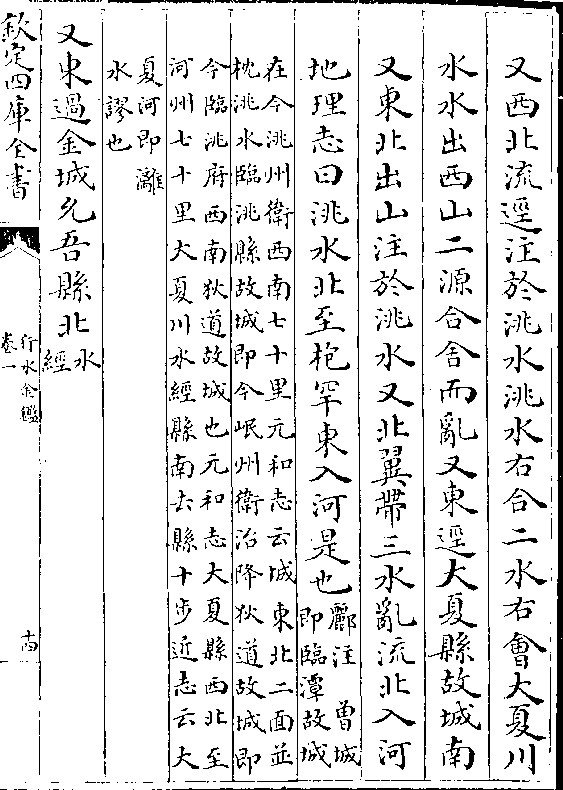 又西北流逕注於洮水洮水右合二水右會大夏川
水水出西山二源合舍而亂又東逕大夏縣故城南
又東北出山注於洮水又北翼帶三水亂流北入河
地理志曰洮水北至枹罕東入河是也酈注 曾城
即臨潭故城
在今洮州衛西南七十里元和志云城東北二面並
枕洮水臨洮縣故城即今岷州衛治降狄道故城即
今臨洮府西南狄道故城也元和志大夏縣西北至
河州七十里大夏川水經縣南去縣十步近志云大
夏河即灕
水謬也
又東過金城允吾縣北水經
欽定四庫全書
行水金鑑
卷一
十四